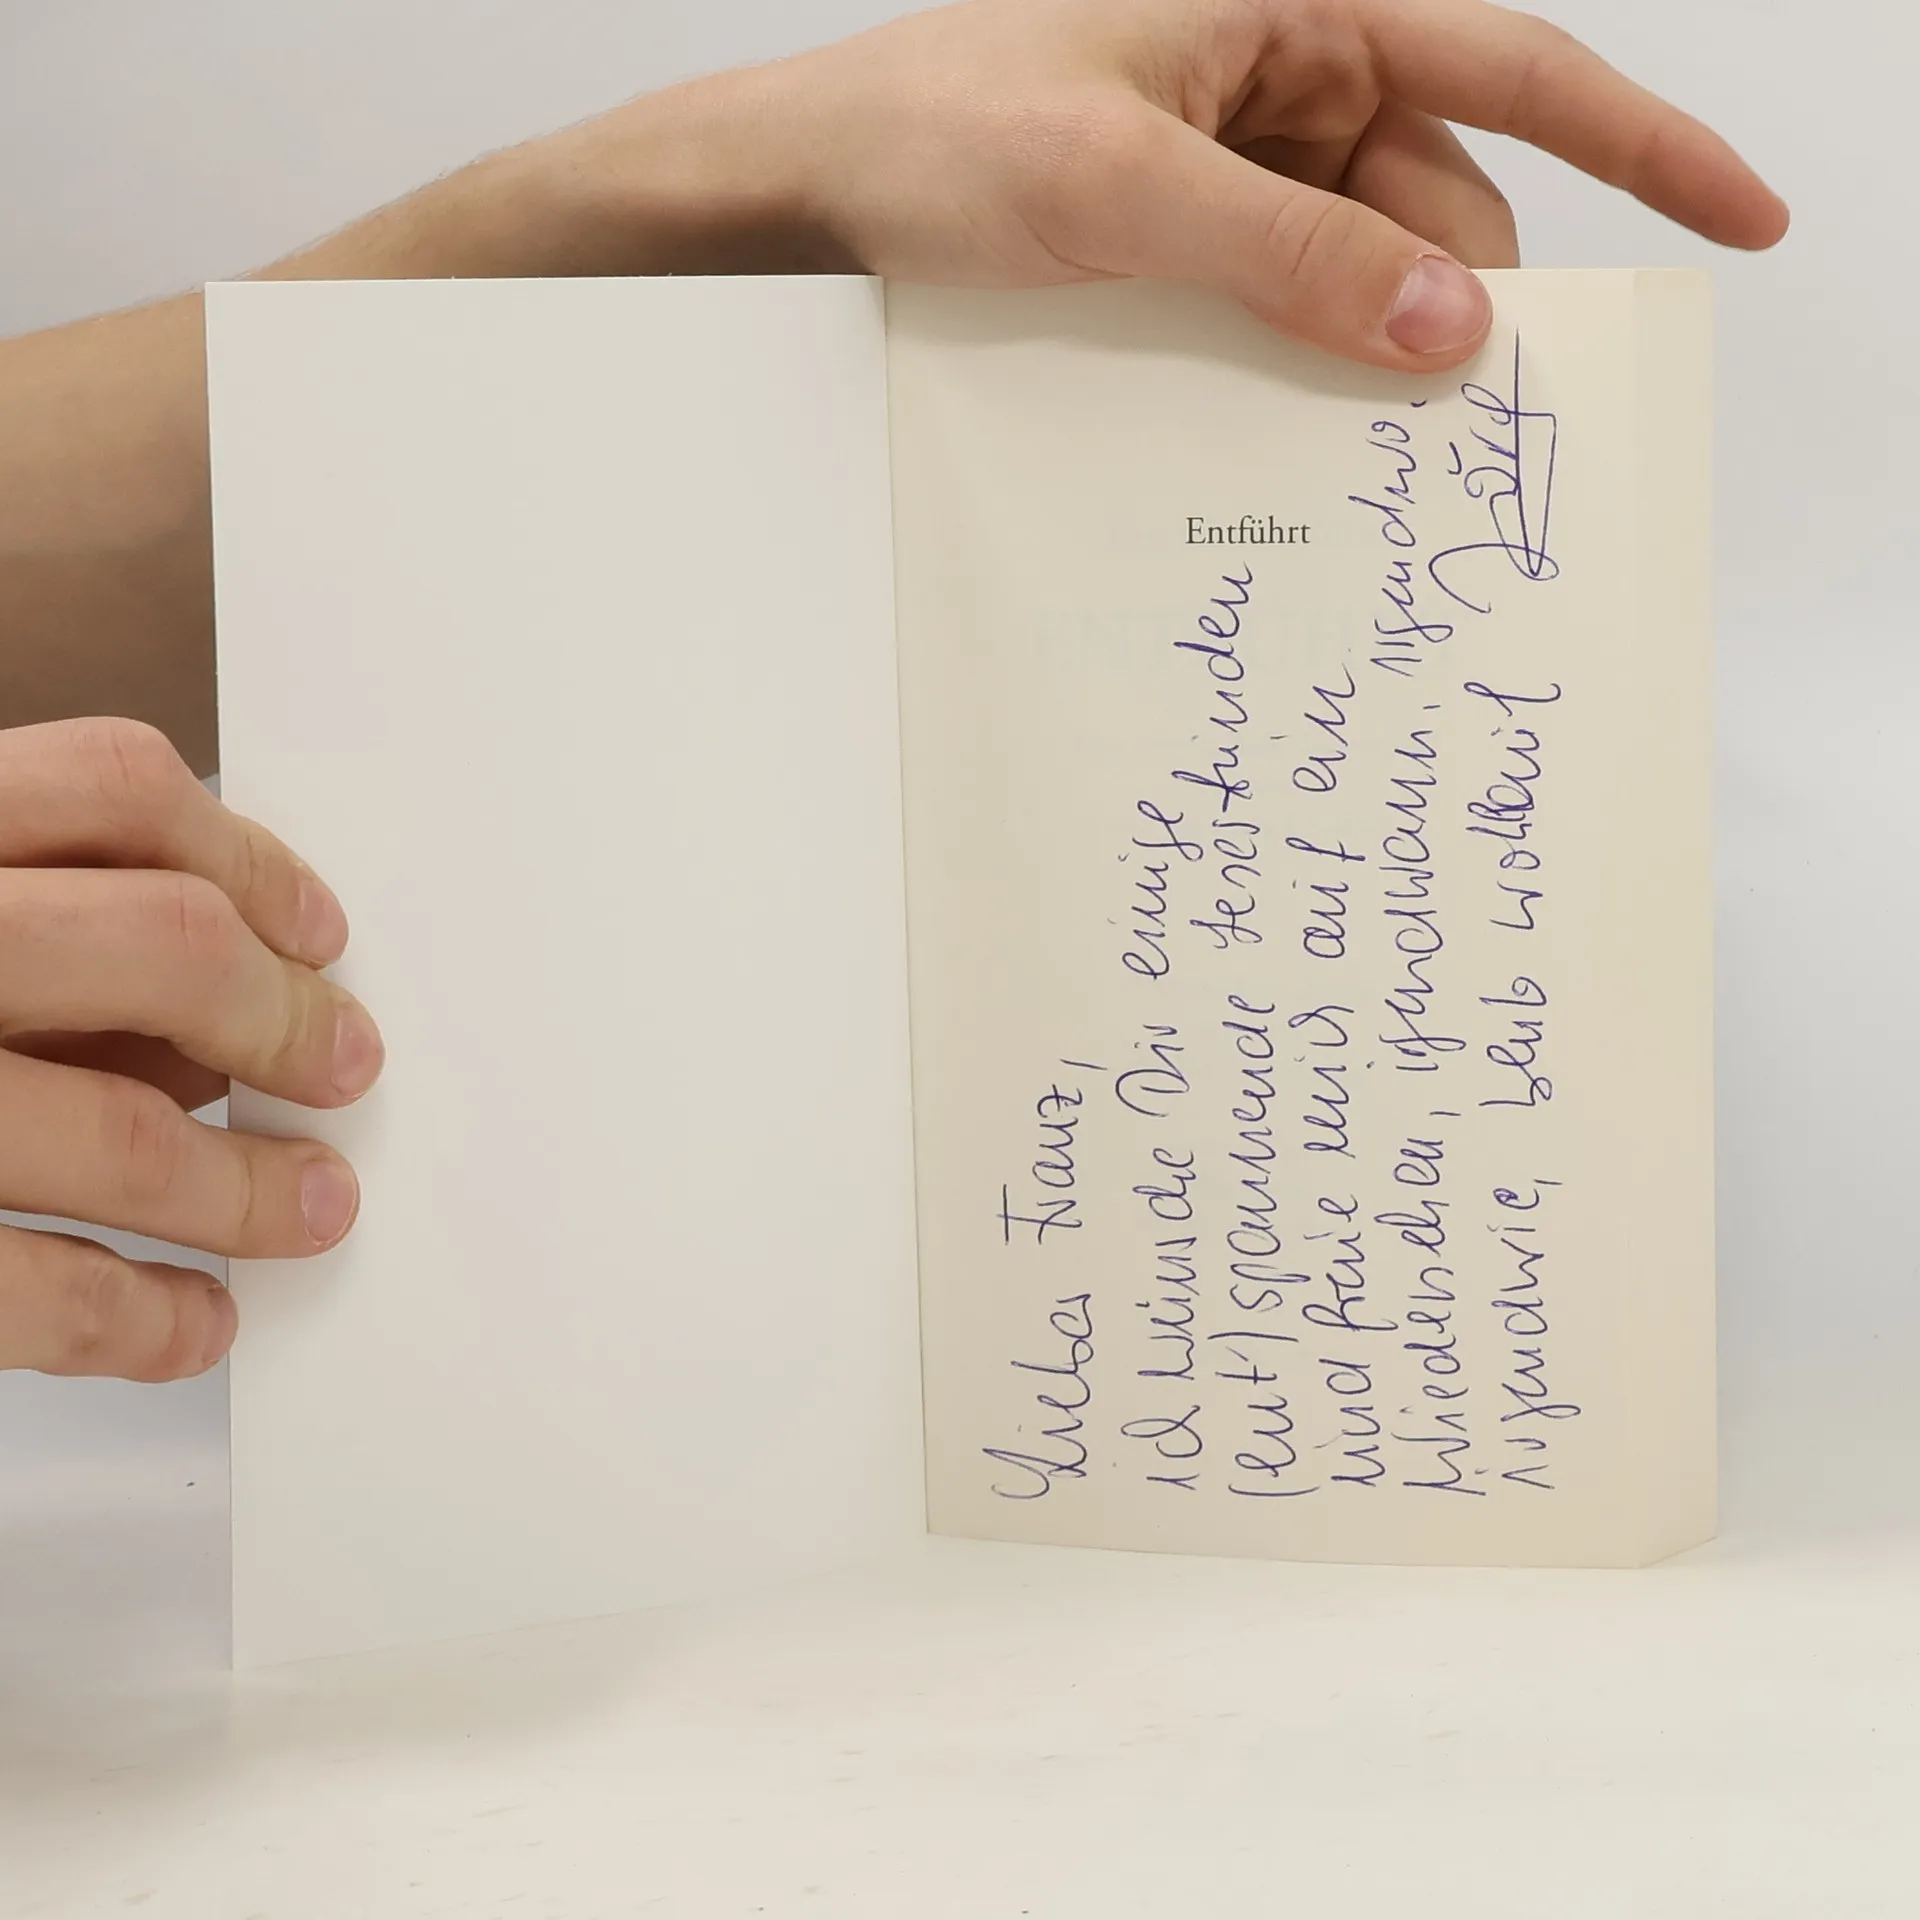 Entführt
Lieber Franz,
ich wünsche Dir einige
(ent)spannende Lesestunden
und freue mich auf ein
Wiedersehen, irgendwann, irgendwo,
irgendwie, Leb wohl